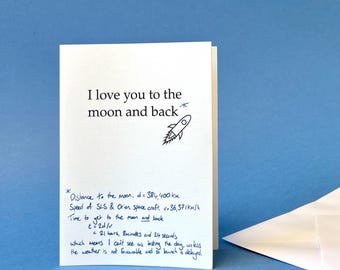 I love you to the
moon and back*
* Distance to the moon: d = 384,400 km
Speed of SLS & Orion space craft, v = 36,371 km/h
Time to get to the moon and back
t = 2d/v
= 21 hours, 8 minutes and 24 seconds
which means I can't see us lasting the day, unless
the weather is not favourable and the launch is delayed.